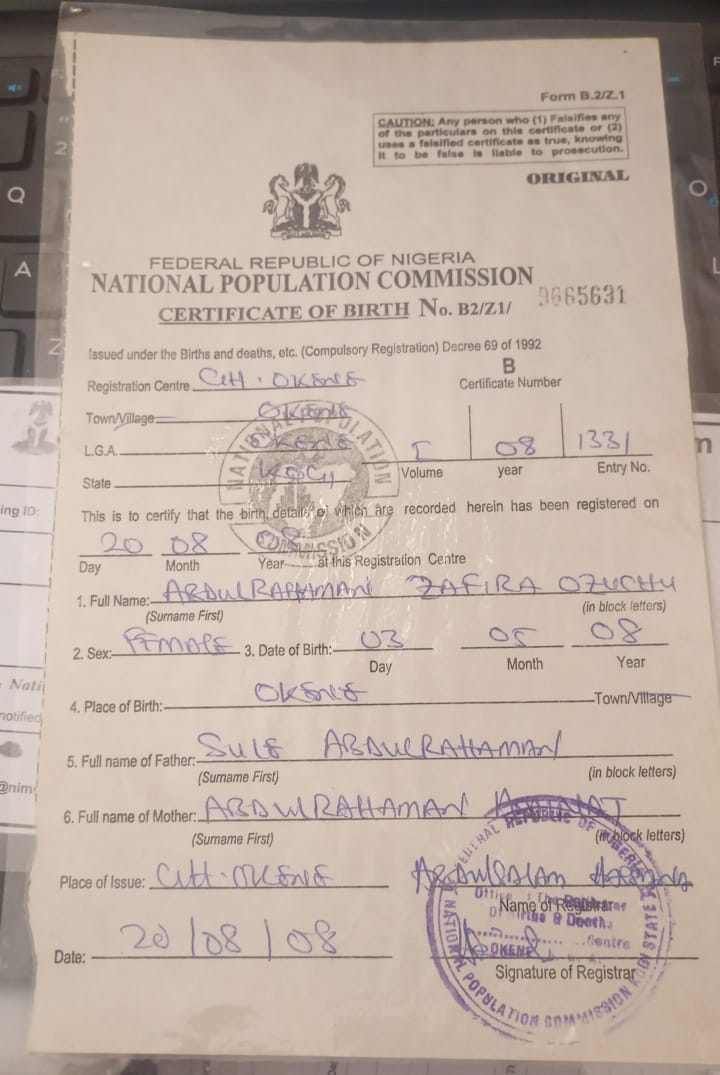 Form B.2/Z.1
CAUTION: Any person who (1) Falsifies any
of the particulars on this certificate or (2)
uses a falsified certificate as true, knowing
it to be false is liable to prosecution.
ORIGINAL
FEDERAL REPUBLIC OF NIGERIA
NATIONAL POPULATION COMMISSION
CERTIFICATE OF BIRTH No. B2/Z1/ 9665631
Issued under the Births and deaths, etc. (Compulsory Registration) Decree 69 of 1992
Registration Centre OKENE
B
Certificate Number
Town/Village OKENE
L.G.A. OKENE
I 08 1331
Volume year Entry No.
State KOGI
NATIONAL POPULATION COMMISSION
This is to certify that the birth, details of which are recorded herein has been registered on
20 08 08
Day Month Year at this Registration Centre
1. Full Name: ABDULRAHAMAN ZAFIRA OZUCHU
(Surname First) (in block letters)
2. Sex: FEMALE 3. Date of Birth: 03 05 08
Day Month Year
4. Place of Birth: OKENE Town/Village
5. Full name of Father: SULE ABDULRAHAMAN
(Surname First) (in block letters)
6. Full name of Mother: ABDULRAHAMAN
(Surname First) (in block letters)
Place of Issue: OKENE
Name of Registrar
Date: 20/08/08
Signature of Registrar
FEDERAL REPUBLIC OF NIGERIA
Office
Births & Deaths
Centre
OKENE
NATIONAL POPULATION COMMISSION KOGI STATE
Q
A
Z
O
ing ID:
Nati
notified
@nim